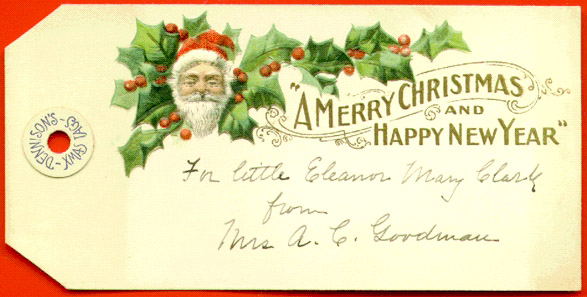 "A MERRY CHRISTMAS
AND
HAPPY NEW YEAR"
For little Eleanor Mary Clark
from
Mrs A. C. Goodman
DENNISON'S